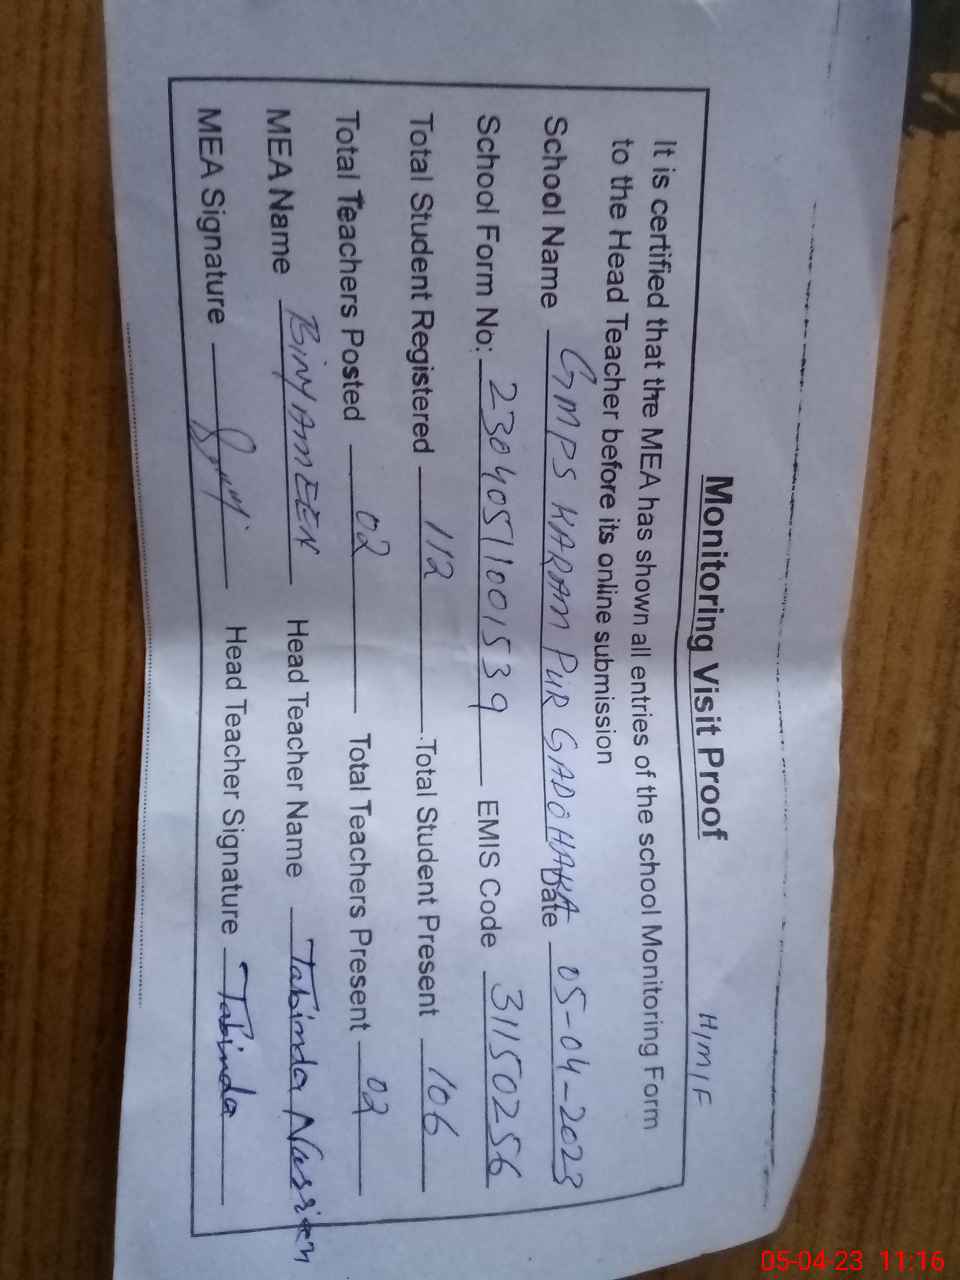 H/M/F
Monitoring Visit Proof
It is certified that the MEA has shown all entries of the school Monitoring Form
to the Head Teacher before its online submission
School Name GMPS KARAM PUR GADOHAKA Date 05-04-2023
School Form No: 2304051001539 EMIS Code 31150256
Total Student Registered 112 Total Student Present 106
Total Teachers Posted 02 Total Teachers Present 02
MEA Name BINYAMEEN Head Teacher Name Tabinda Nasreen
MEA Signature Head Teacher Signature Tabinda
05-04-23 11:16